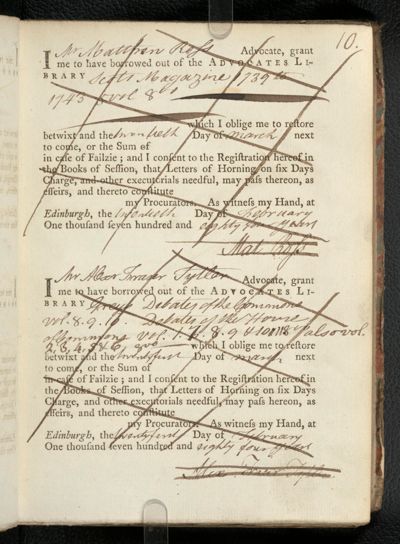 10.
I Mr Matthew Ross Advocate, grant
me to have borrowed out of the ADVOCATES LI-
BRARY Scots Magazine 1739 to
1745 vol 8vo
which I oblige me to reſtore
betwixt and the twentieth Day of march next
to come, or the Sum of
in caſe of Failzie ; and I conſent to the Regiſtration hereof in
the Books of Seſſion, that Letters of Horning on ſix Days
Charge, and other executorials needful, may paſs thereon, as
effeirs, and thereto conſtitute
my Procurators. As witneſs my Hand, at
Edinburgh, the twentieth Day of February
One thouſand ſeven hundred and eighty four years
Mat. Ross
I Mr Alexr Fraser Tytler Advocate, grant
me to have borrowed out of the ADVOCATES LI-
BRARY Greys Debates of the Commons
vol. 8. 9. 10 Debates of the House
of Commons vol. 1. 7. 8. 9 & also vol.
2, 3, 4, 5 & 6, 8vo which I oblige me to reſtore
betwixt and the twentyfirst Day of march next
to come, or the Sum of
in caſe of Failzie ; and I conſent to the Regiſtration hereof in
the Books of Seſſion, that Letters of Horning on ſix Days
Charge, and other executorials needful, may paſs hereon, as
effeirs, and thereto conſtitute
my Procurators. As witneſs my Hand, at
Edinburgh, the twentyfirst Day of February
One thouſand ſeven hundred and eighty four years
Alex Fraser Tytler